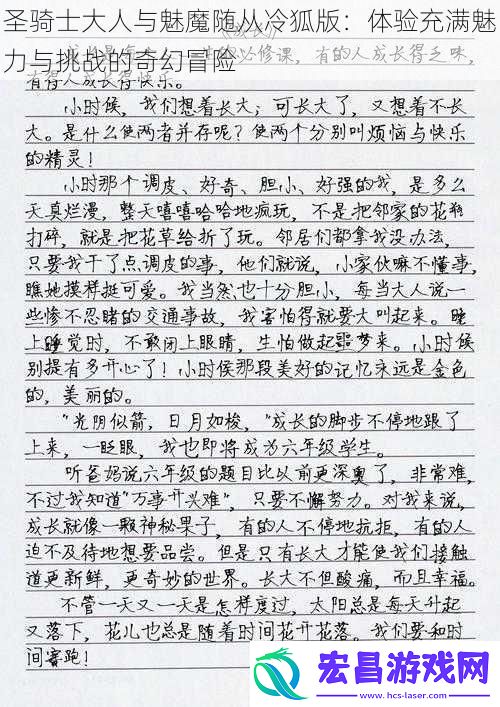 圣骑士大人与魅魔随从冷狐版：体验充满魅
力与挑战的奇幻冒险
必修课，有的人成长得乏味，
有得人成长得快乐。
小时候，我们想着长大；可长大了，又想着不长
大。是什么使两者并存呢？使两个分别叫烦恼与快乐
的精灵！
小时那个调皮、好奇、胆小、好强的我，是多么
天真烂漫，整天嘻嘻哈哈地疯玩，不是把邻家的花瓶
打碎，就是把花草给折了玩。邻居们都拿我没办法，
只要我干了点调皮的事，他们就说，小家伙嘛不懂事，
瞧她摸样挺可爱。我当然也十分胆小，每当大人说一
些惨不忍睹的交通事故，我害怕得就要大叫起来。晚
上睡觉时，不敢闭上眼睛，生怕做起噩梦来。小时候
别提有多开心了！小时侯那段美好的记忆永远是金色
的，美丽的。
“光阴似箭，日月如梭，”成长的脚步不停地跟了
上来，一眨眼，我也即将成为六年级学生。
听爸妈说六年级的题目比以前更深奥了，非常难，
不过我知道“万事开头难”，只要不懈努力。对我来说，
成长就像一颗神秘果子，有的人不停地抗拒，有的人
迫不及待地想要品尝。但是只有长大才能使我们接触
道更新鲜，更奇妙的世界。长大不但酸痛，而且幸福。
不管一天又一天是怎样度过，太阳总是每天升起
又落下，花儿也总是随着时间花开花落。我们要和时
间赛跑！
宏昌游戏网
www.hcs-laser.com